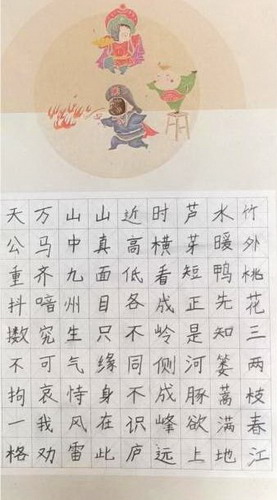 竹外桃花三两枝春江
水暖鸭先知蒌蒿满地
芦芽短正是河豚欲上
时横看成岭侧成峰远
近高低各不同不识庐
山真面目只缘身在此
山中九州生气恃风雷
万马齐喑究可哀我劝
天公重抖擞不拘一格